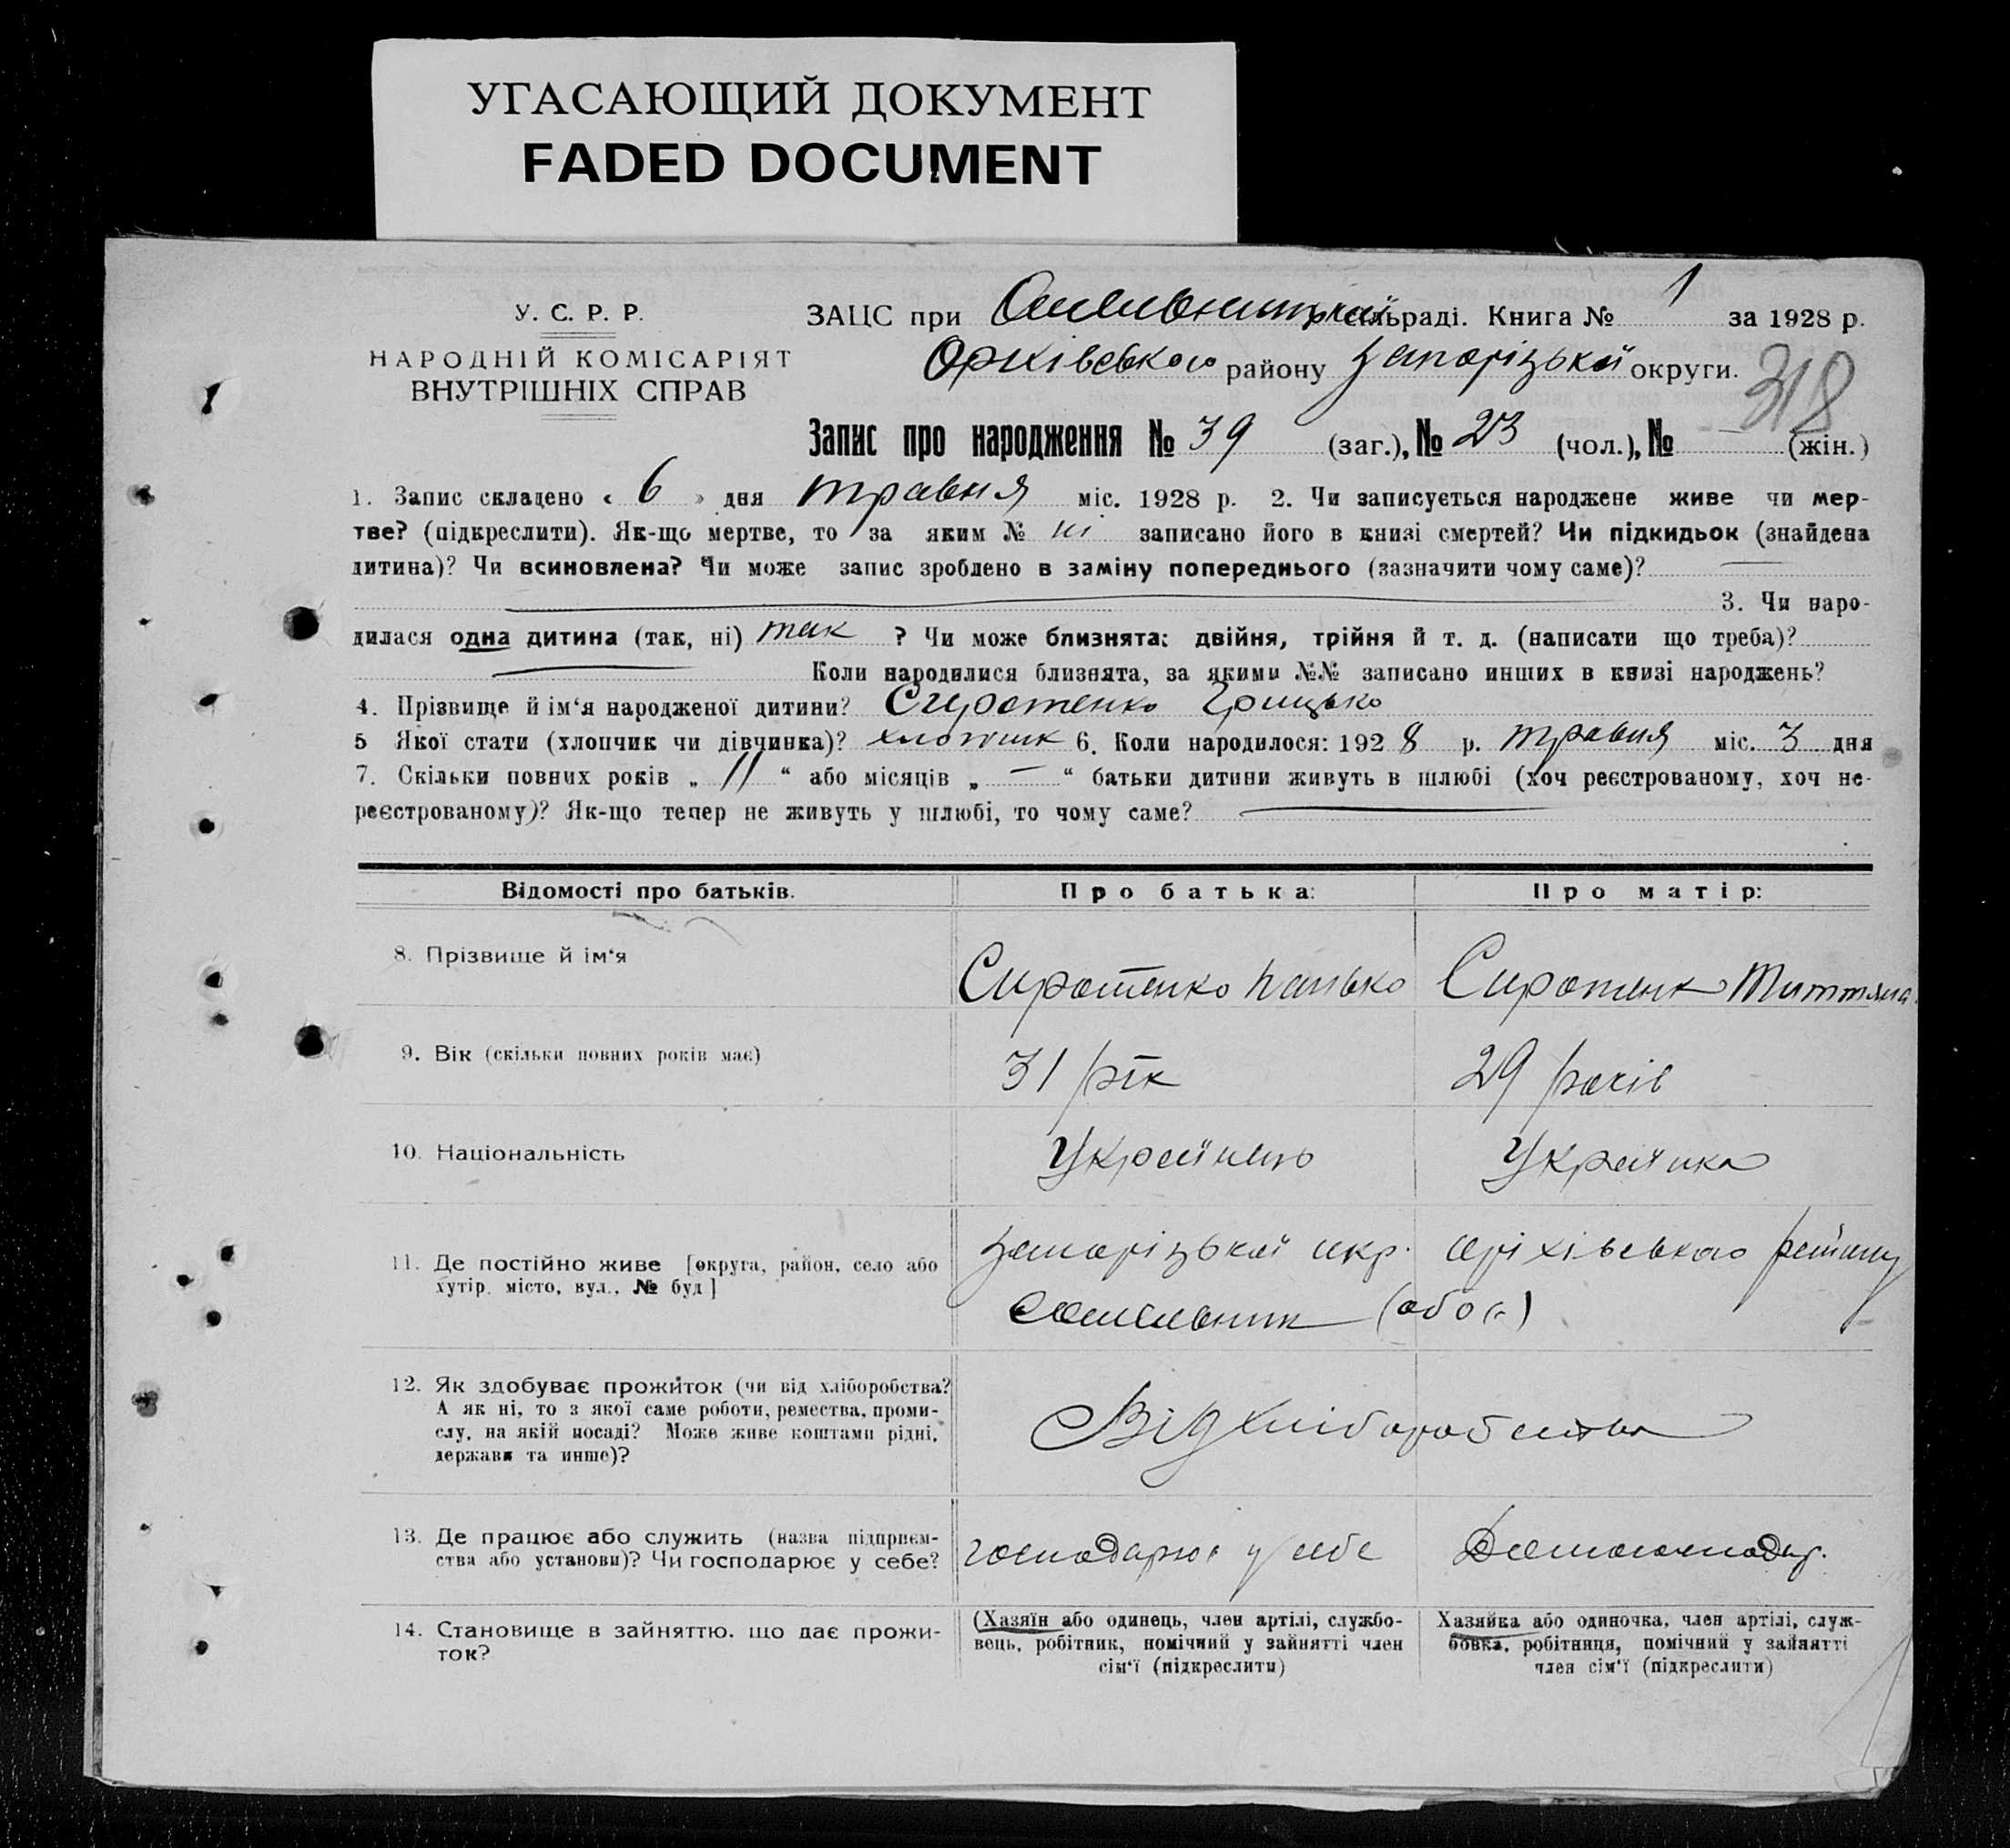 УГАСАЮЩИЙ ДОКУМЕНТ
FADED DOCUMENT
У. С. Р. Р.
НАРОДНІЙ КОМІСАРІЯТ
ВНУТРІШНІХ СПРАВ
1
ЗАЦС при сільраді. Книга № 1 за 1928 р.
району Запорізької округи.
318
Запис про народження № 39 (заг.), № 23 (чол.), № — (жін.)
1. Запис складено « 6 » дня травня міс. 1928 р. 2. Чи записується народжене живе чи мер-
тве? (підкреслити). Як-що мертве, то за яким № ні записано його в книзі смертей? Чи підкидьок (знайдена
дитина)? Чи всиновлена? Чи може запис зроблено в заміну попереднього (зазначити чому саме)? —
3. Чи наро-
дилася одна дитина (так, ні) так ? Чи може близнята: двійня, трійня й т. д. (написати що треба)?
— Коли народилися близнята, за якими №№ записано инших в книзі народжень?
4. Прізвище й ім‘я народженої дитини? Сиротенко Грицько
5 Якої стати (хлопчик чи дівчинка)? хлопчик 6. Коли народилося: 1928 р. травня міс. 3 дня
7. Скільки повних років „ 11 “ або місяців „ — “ батьки дитини живуть в шлюбі (хоч реєстрованому, хоч не-
реєстрованому)? Як-що тепер не живуть у шлюбі, то чому саме? —
Відомості про батьків. Про батька: Про матір:
8. Прізвище й ім‘я
Сиротенко Панько Сиротенко Титтяна
9. Вік (скільки повних років має)
31 рік 29 років
10. Національність
Українець Українка
11. Де постійно живе [округа, район, село або
хутір. місто, вул., № буд.]
Запорізької окр. оріхівського району
12. Як здобуває прожиток (чи від хліборобства?
А як ні, то з якої саме роботи, ремества, проми-
слу, на якій посаді? Може живе коштами рідні,
держави та инше)?
Від хліборобства
13. Де працює або служить (назва підприєм-
ства або установи)? Чи господарює у себе?
господарює у себе Домогосподар.
14. Становище в зайняттю. що дає прожи-
ток?
(Хазяїн або одинець, член артілі, службо-
вець, робітник, помічний у зайнятті член
сім‘ї (підкреслити)
Хазяйка або одиночка, член артілі, служ-
бовка, робітниця, помічний у зайнятті
член сім‘ї (підкреслити)